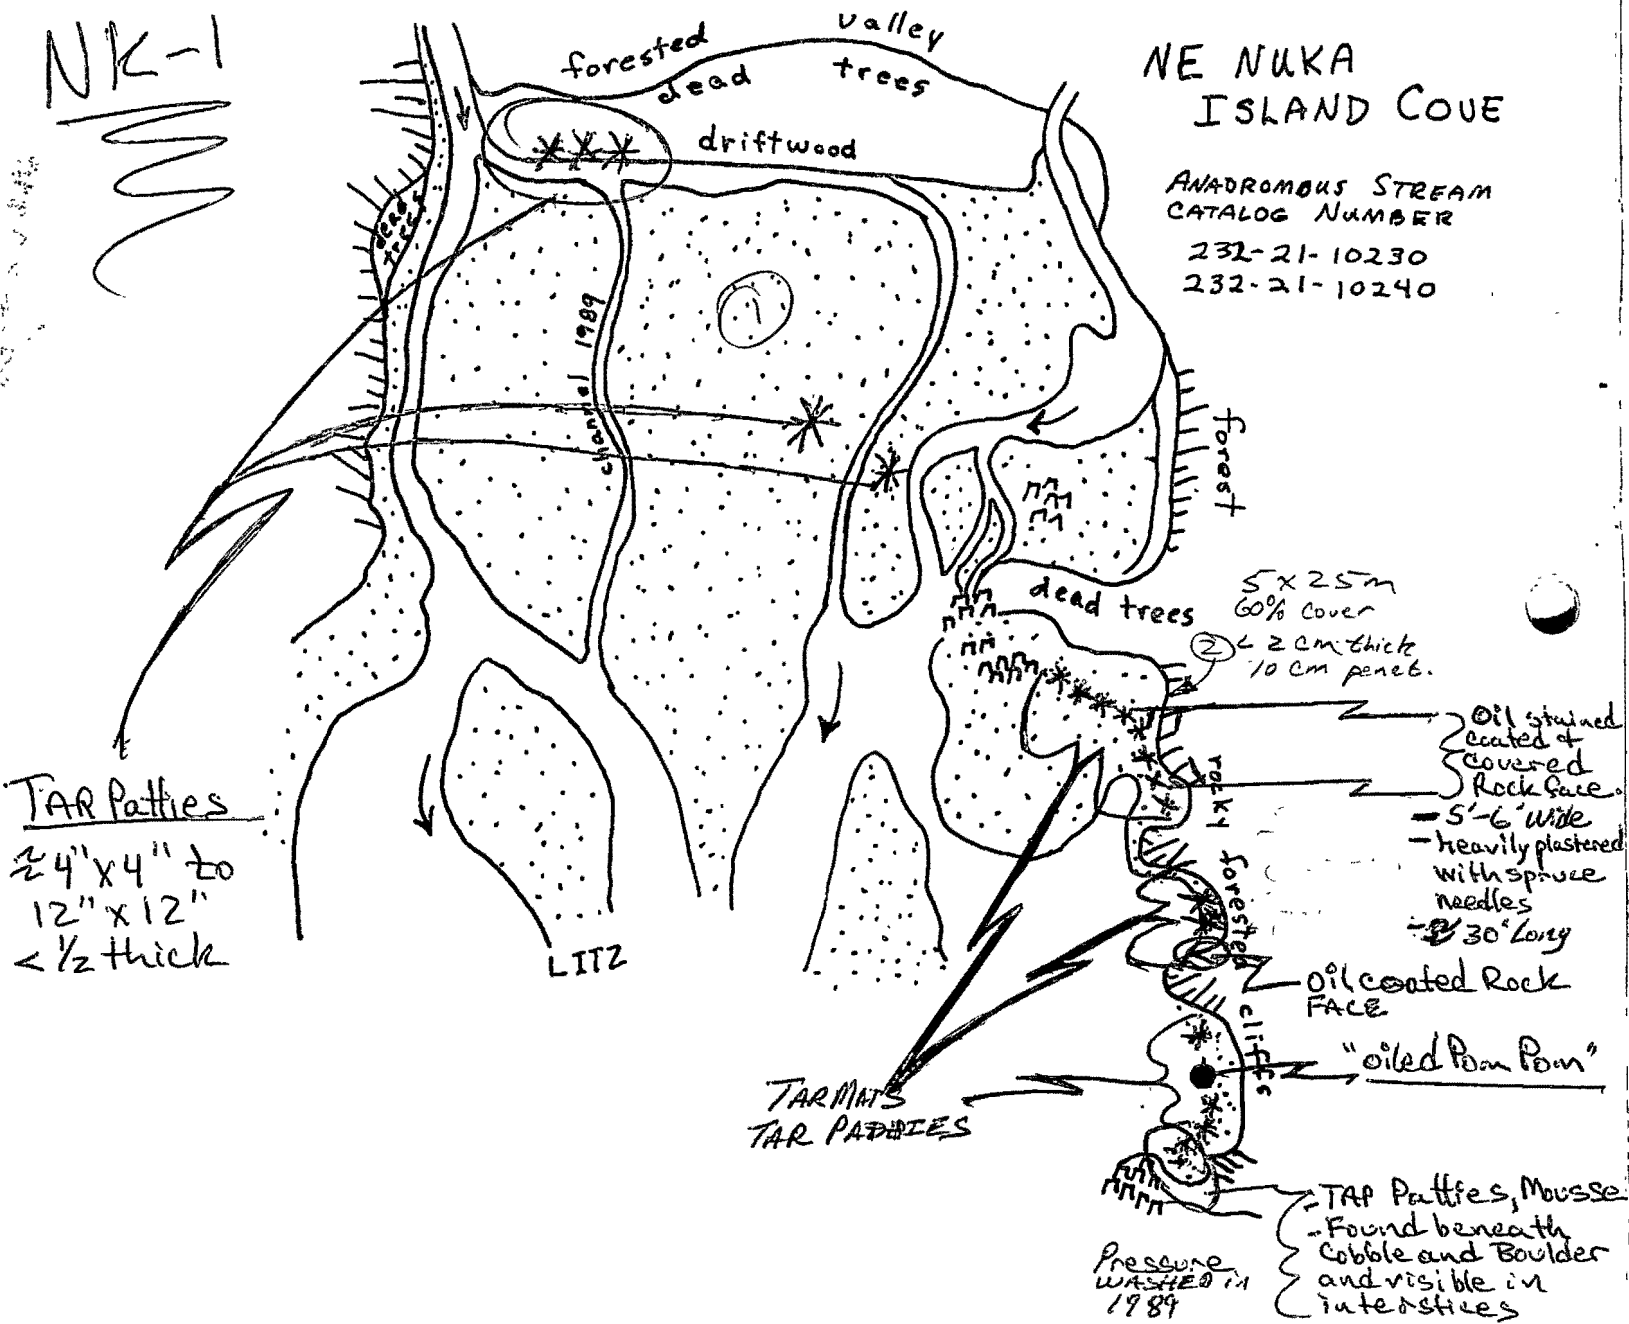 NK-1
forested valley
dead trees
driftwood
dead trees
channel 1989
1
NE NUKA
ISLAND COVE
ANADROMOUS STREAM
CATALOG NUMBER
232-21-10230
232-21-10240
forest
dead trees
5 x 25m
60% cover
2 < 2 cm thick
10 cm penet.
Oil stained
coated &
covered
Rock face.
- 5'-6' wide
- heavily plastered
with spruce
needles
30' Long
rocky forested cliffs
oil coated Rock
FACE
"oiled Pom Pom"
TAR Patties
≈ 4" x 4" to
12" x 12"
< 1/2 thick
LITZ
TARMATS
TAR PADDIES
Pressure
WASHED in
1989
- TAP Patties, Mousse
- Found beneath
Cobble and Boulder
and visible in
interstices